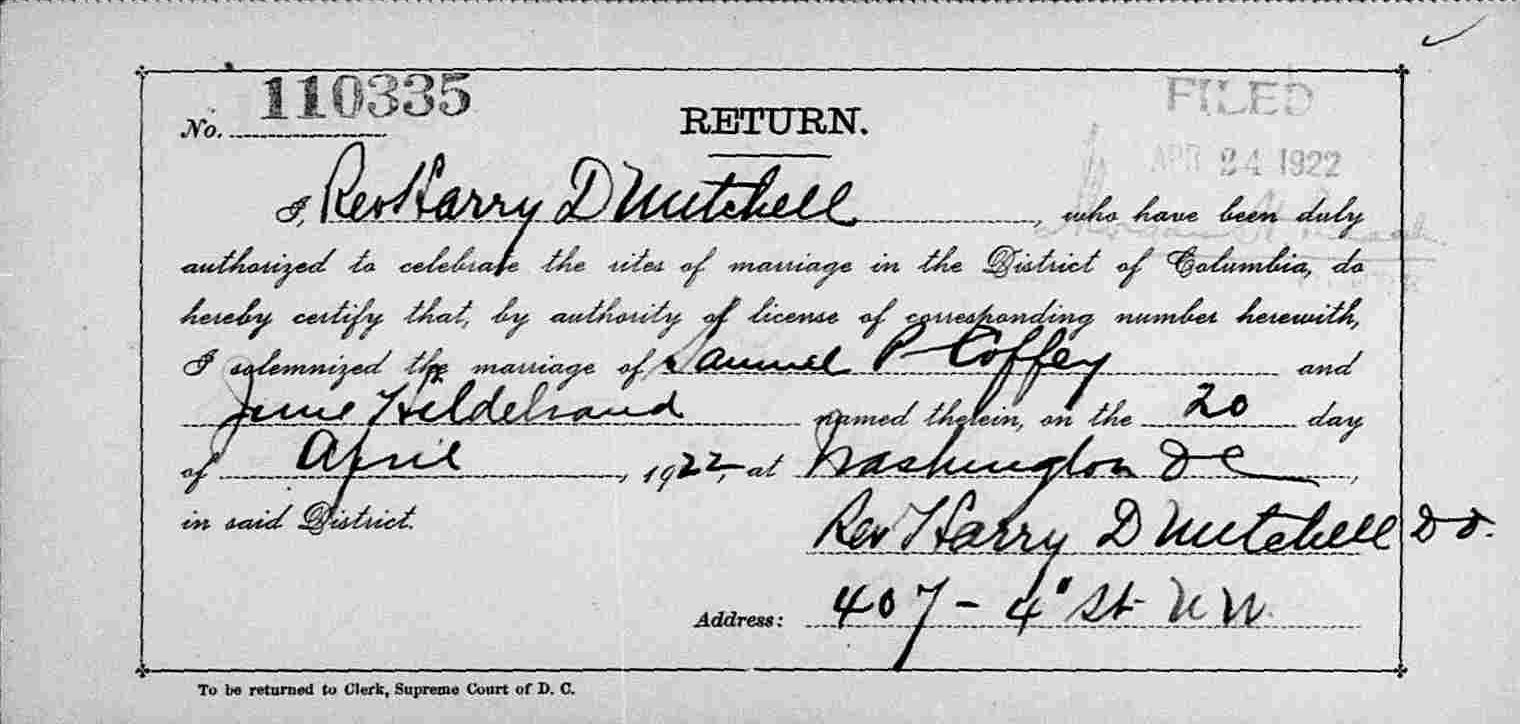 No. 110335
RETURN.
FILED
APR 24 1922
I, Rev Harry D Mitchell, who have been duly
authorized to celebrate the rites of marriage in the District of Columbia, do
hereby certify that, by authority of license of corresponding number herewith,
I solemnized the marriage of Samuel P Coffey and
June Hildebrand named therein, on the 20 day
of April, 1922, at Washington D C,
in said District.
Rev Harry D Mitchell D D.
Address: 407 - 4" St N W.
To be returned to Clerk, Supreme Court of D. C.